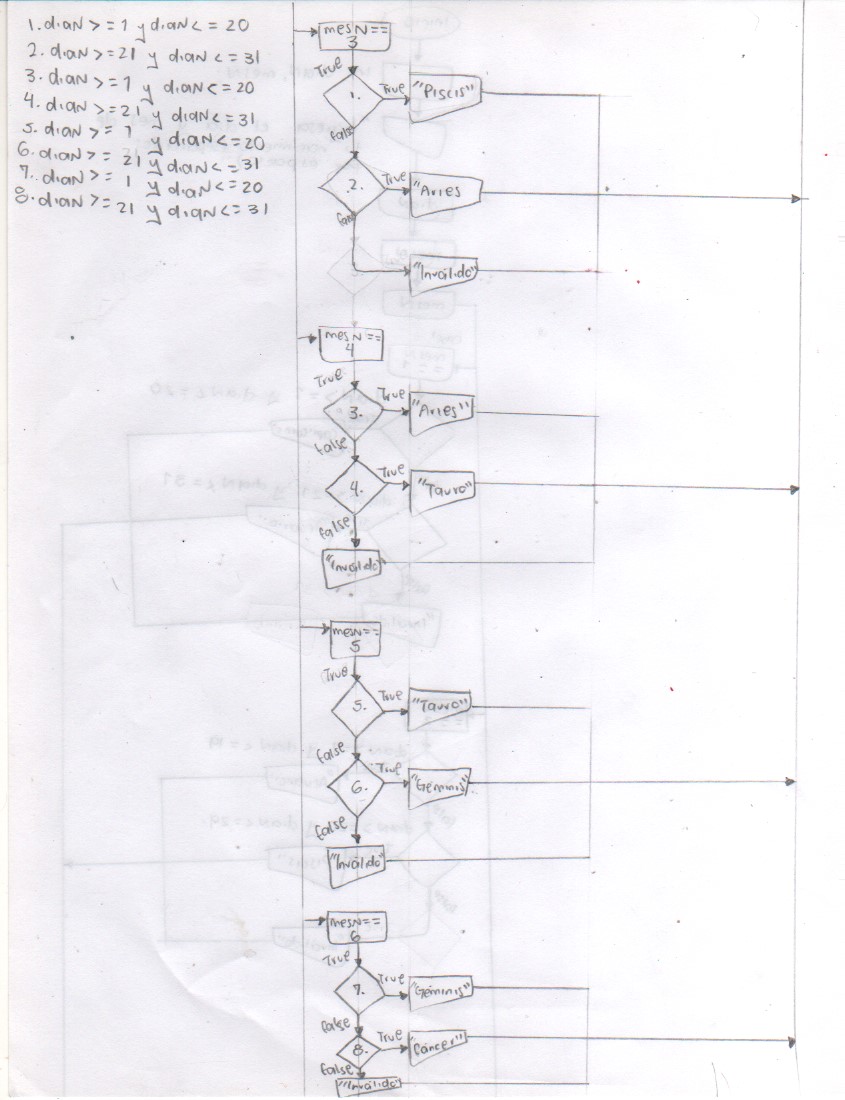 1. diaN >= 1 y diaN <= 20
2. diaN >= 21 y diaN <= 31
3. diaN >= 1 y diaN <= 20
4. diaN >= 21 y diaN <= 31
5. diaN >= 1 y diaN <= 20
6. diaN >= 21 y diaN <= 31
7. diaN >= 1 y diaN <= 20
8. diaN >= 21 y diaN <= 31
mesN ==
3
True
1.
True
"Piscis"
False
2.
True
"Aries
False
"Inválido"
mesN ==
4
True
3.
True
"Aries"
False
4.
True
"Tauro"
False
"Inválido"
mesN ==
5
True
5.
True
"Tauro"
False
6.
True
"Géminis"
False
"Inválido"
mesN ==
6
True
7.
True
"Géminis"
False
8.
True
"Cáncer"
False
"Inválido"